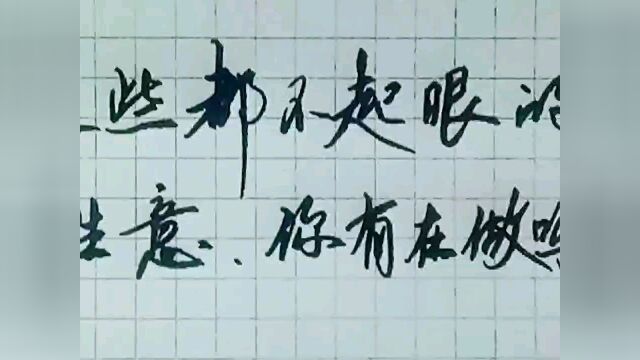 一些都不起眼的
生意、你有在做吗